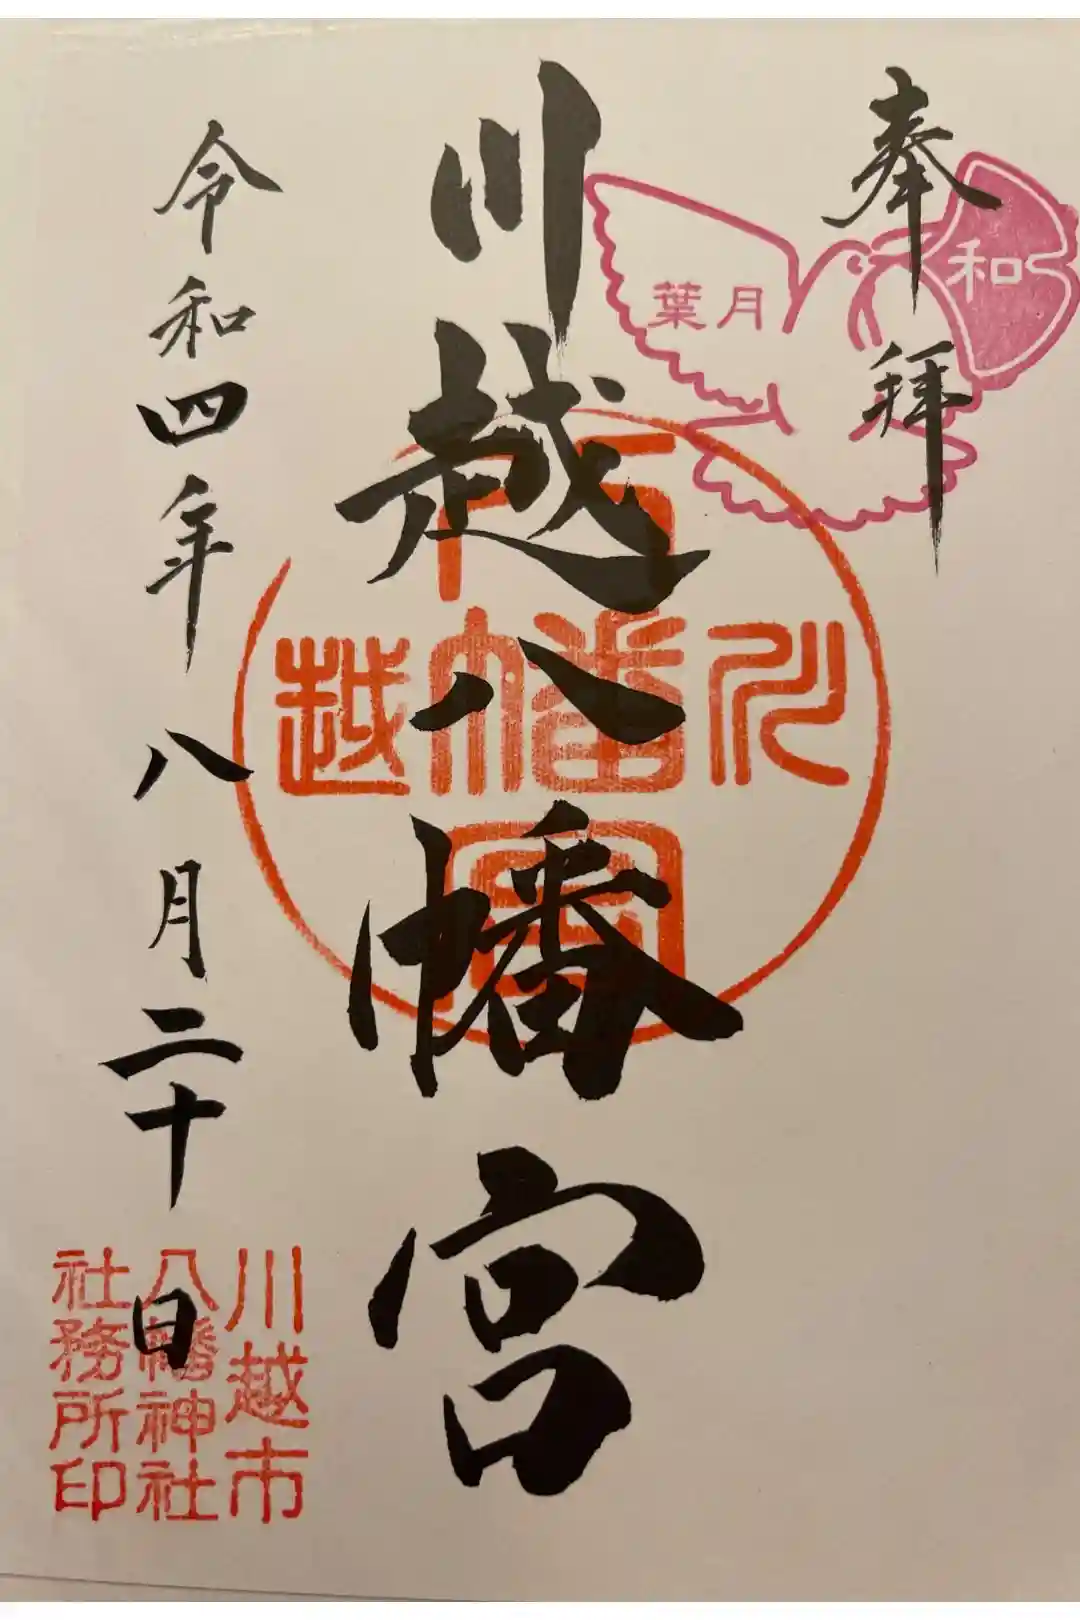 奉拝
和
葉月
川越八幡宮
川
八幡宮
越
令和四年八月二十日
川越市
八幡神社
社務所印